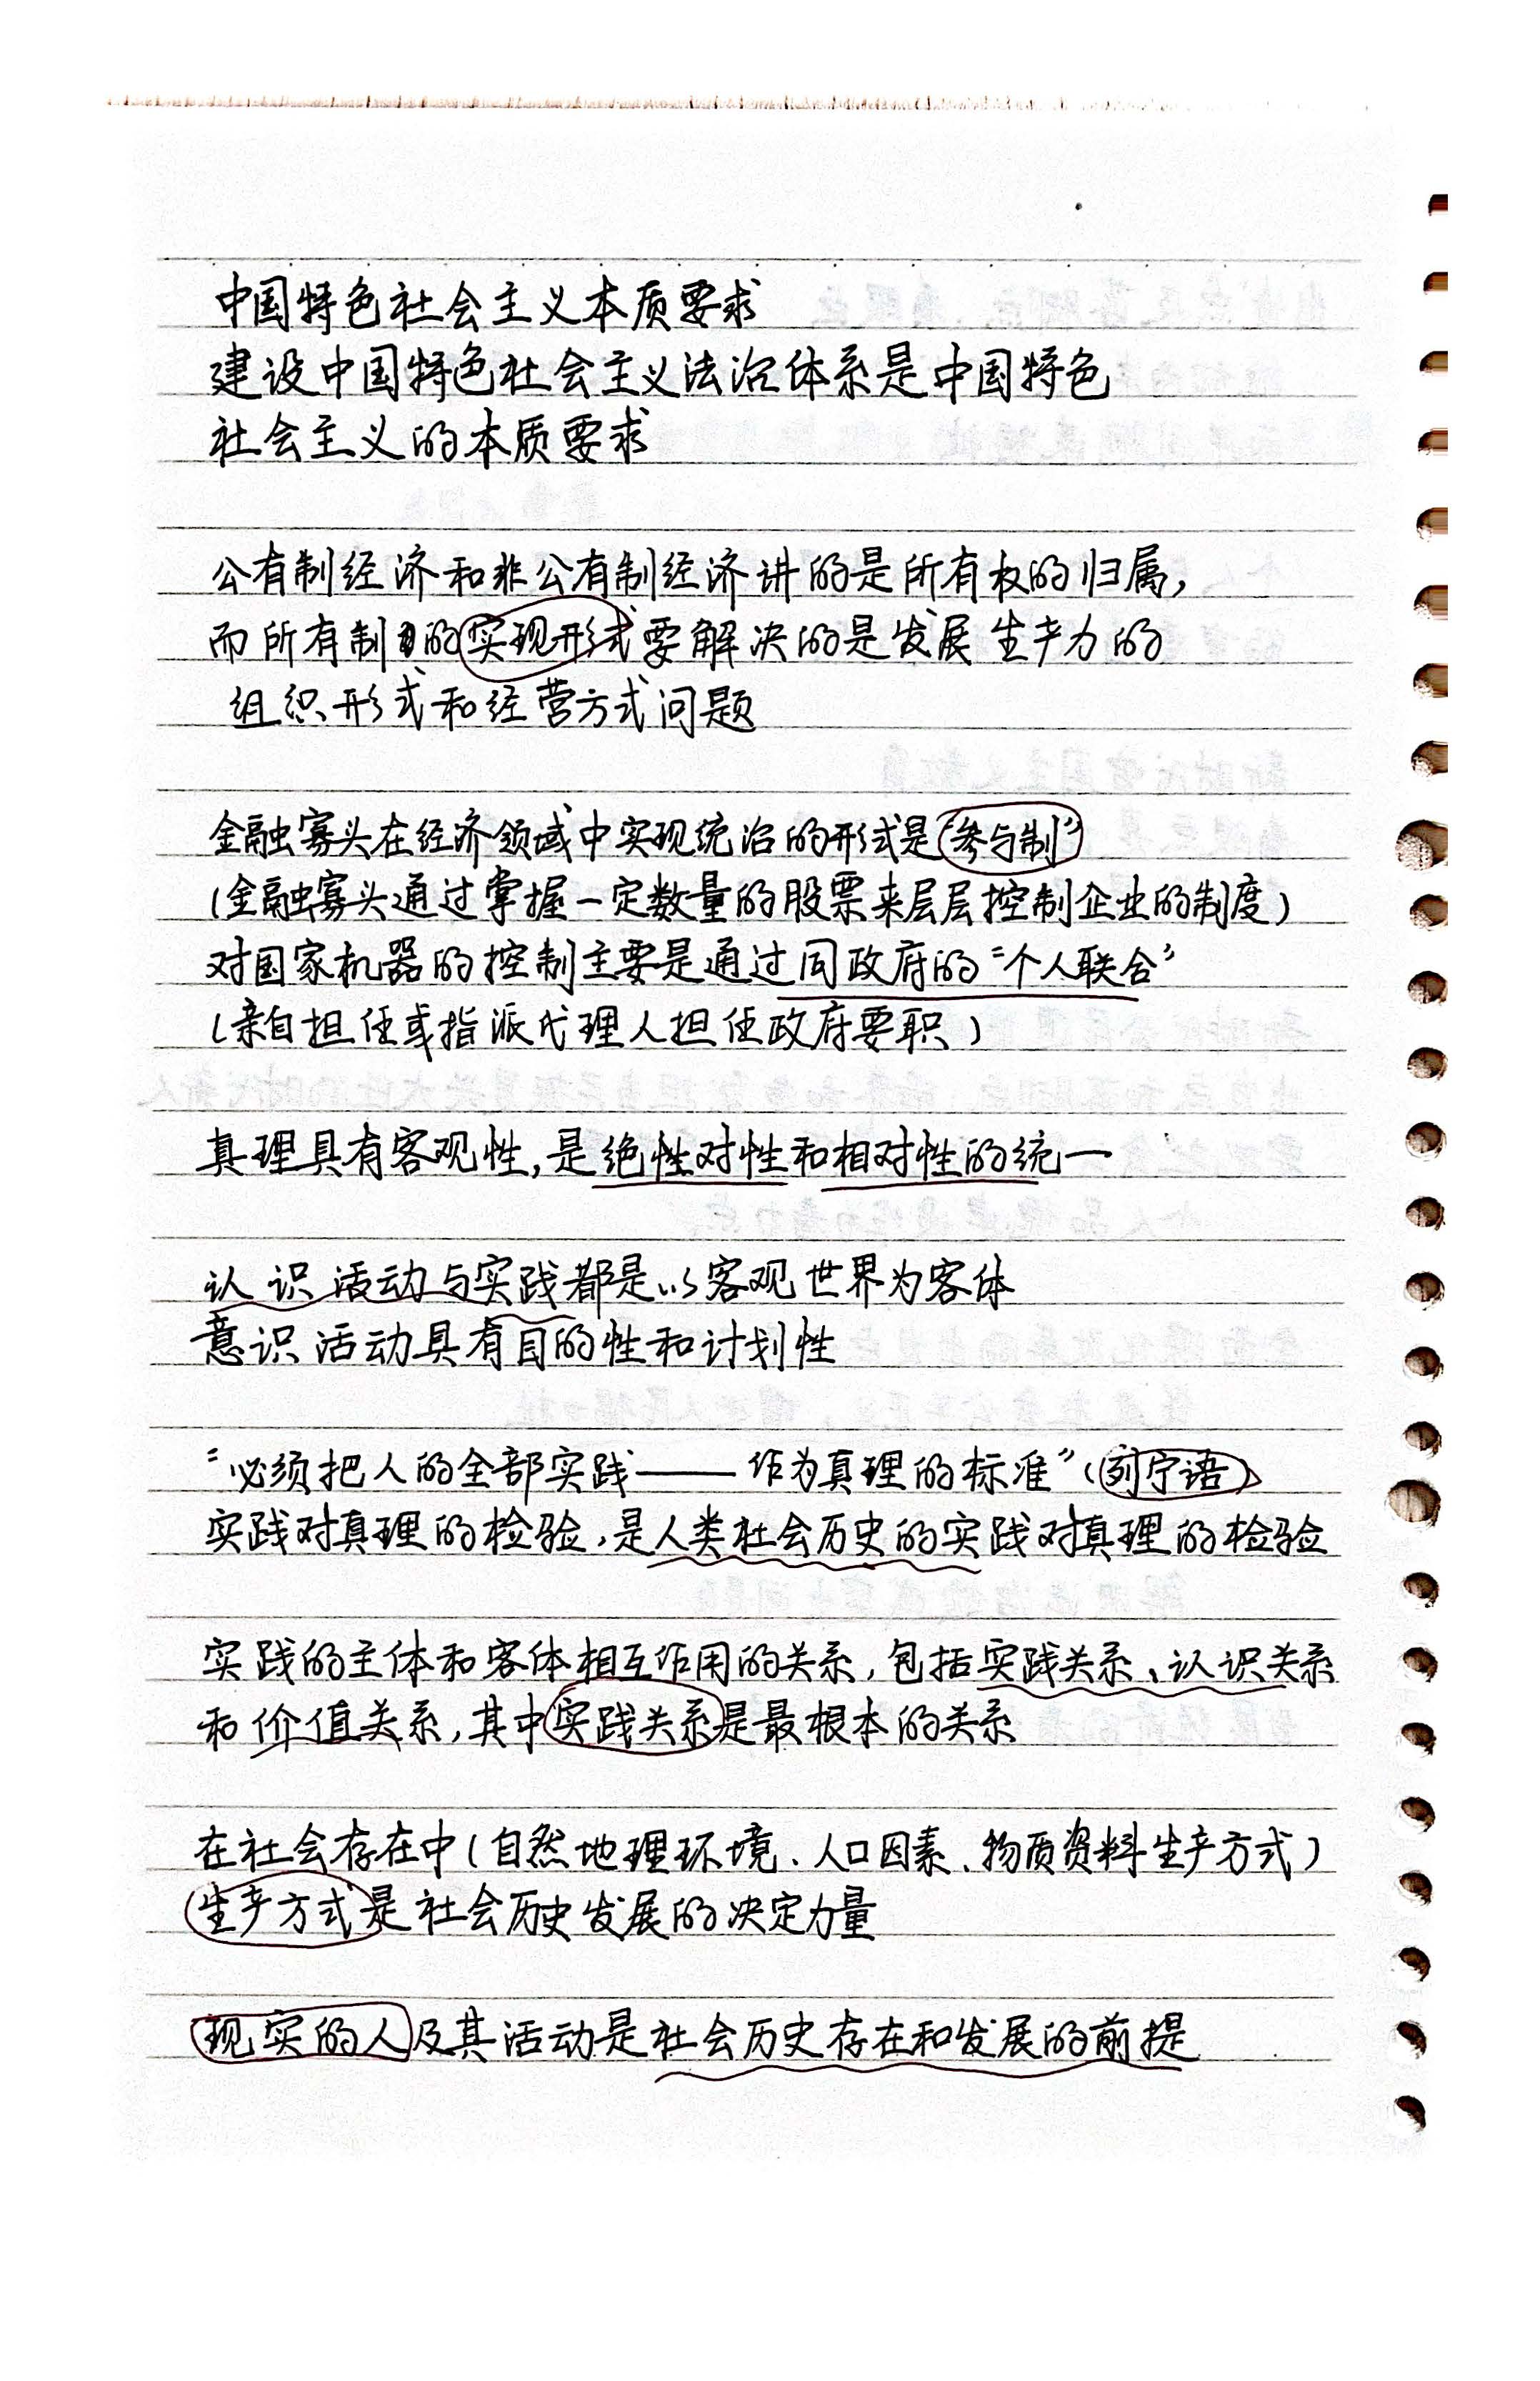 中国特色社会主义本质要求
建设中国特色社会主义法治体系是中国特色
社会主义的本质要求
公有制经济和非公有制经济讲的是所有权的归属,
而所有制的实现形式要解决的是发展生产力的
组织形式和经营方式问题
金融寡头在经济领域中实现统治的形式是“参与制”
(金融寡头通过掌握一定数量的股票来层层控制企业的制度)
对国家机器的控制主要是通过同政府的“个人联合”
(亲自担任或指派代理人担任政府要职)
真理具有客观性,是绝性对性和相对性的统一
认识活动与实践都是以客观世界为客体
意识活动具有目的性和计划性
“必须把人的全部实践——作为真理的标准”(列宁语)
实践对真理的检验,是人类社会历史的实践对真理的检验
实践的主体和客体相互作用的关系,包括实践关系、认识关系
和价值关系,其中实践关系是最根本的关系
在社会存在中(自然地理环境、人口因素、物质资料生产方式)
生产方式是社会历史发展的决定力量
现实的人及其活动是社会历史存在和发展的前提